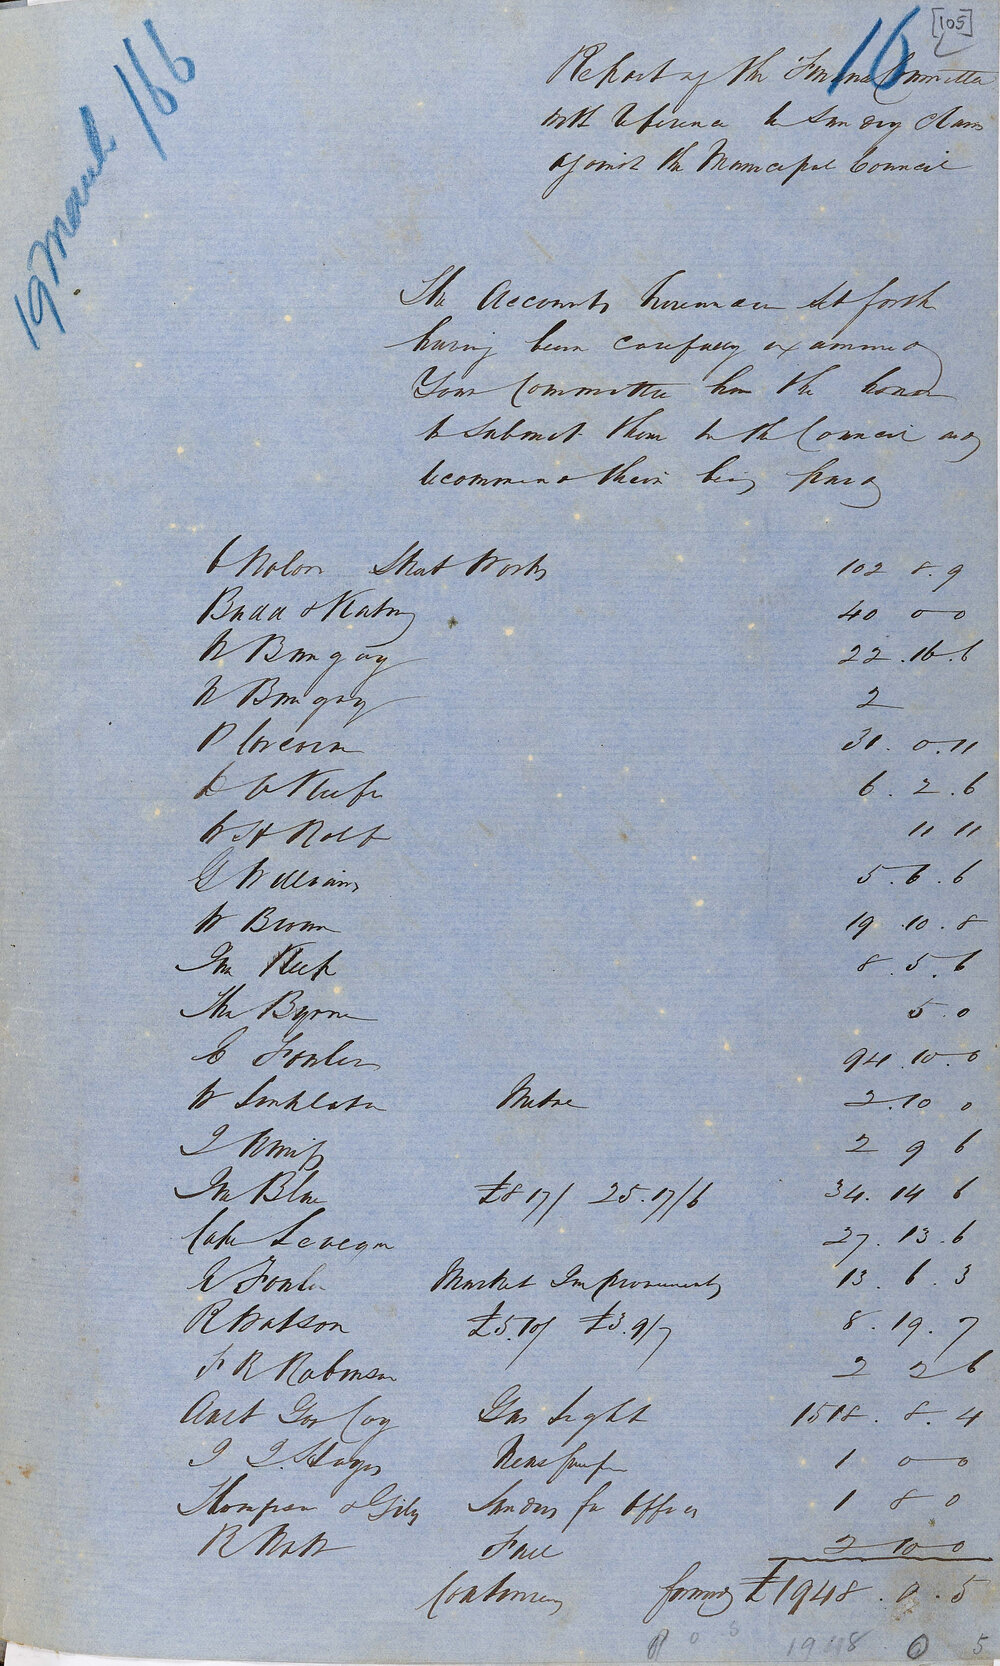 [105]
16
19 March /66
Report of the Finance Committee
with reference to Sundry Claims
against the Municipal Council
The Accounts hereunder set forth
having been carefully examined
Your Committee have the honor
to submit them to the Council and
recommend their being paid
Street Works 102 8. 9
Budd & 40 0 0
W Bungay 22. 16. 6
W Bungay 2
P Corcoran 31. 0. 11
O'Keefe 6. 2. 6
W H Rolt 11 11
G Williams 5. 6. 6
W Brown 19. 10. 8
Jno Keep 8. 5. 6
Thos Byrne 5. 0
E Fowler 94. 10. 0
W Metre 2. 10 0
2 9 6
Jno Blue £8 17/ 25. 17/6 34. 14 6
27. 13. 6
E Fowler Market Improvements 13. 6. 3
R Watson £5. 10/ £3. 9/7 8. 19. 7
F R Robinson 2 2 6
Aust Gas Coy Gas Light 1518. 8. 4
Newspaper 1 0 0
Thompson & Giles Sundries for Offices 1 8 0
R Watt Fuel 2 10 0
forward £1948. 0. 5
1948 0 5